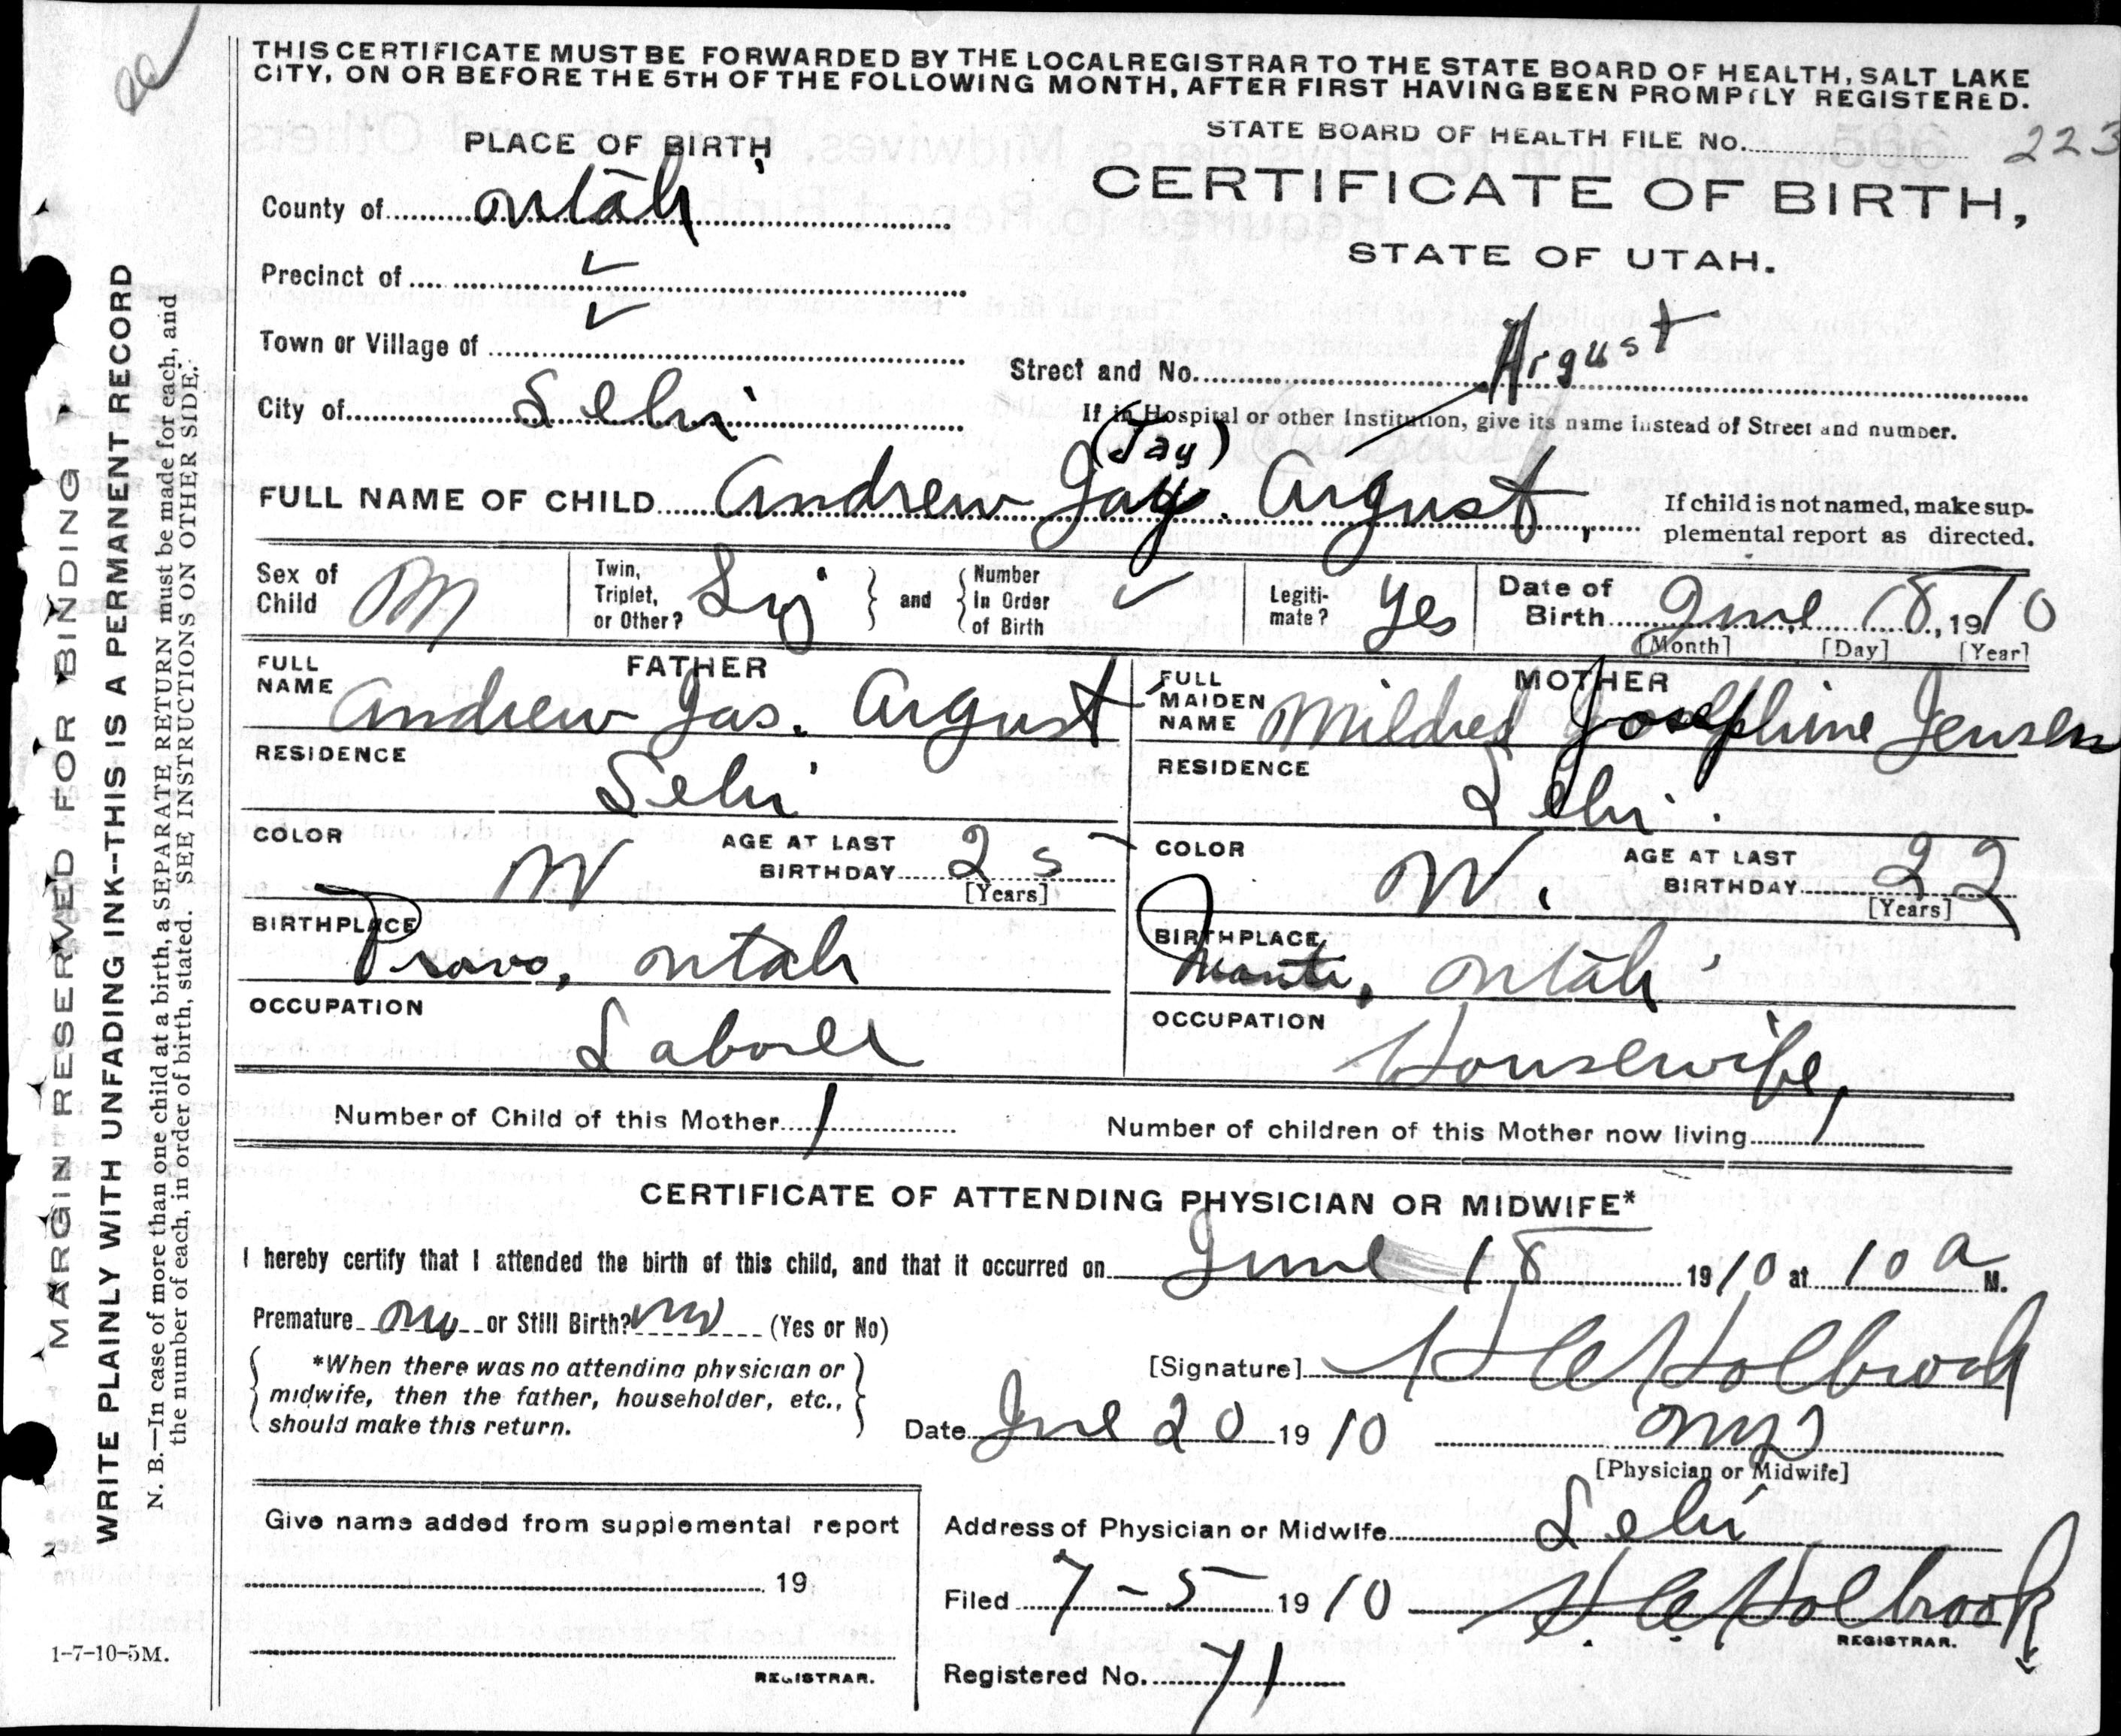 THIS CERTIFICATE MUST BE FORWARDED BY THE LOCAL REGISTRAR TO THE STATE BOARD OF HEALTH, SALT LAKE
CITY, ON OR BEFORE THE 5TH OF THE FOLLOWING MONTH, AFTER FIRST HAVING BEEN PROMPTLY REGISTERED.
STATE BOARD OF HEALTH FILE No. 223
PLACE OF BIRTH
CERTIFICATE OF BIRTH,
STATE OF UTAH.
County of Utah
Precinct of ✓
Town or Village of ✓
Street and No.
Argust
City of Lehi
If in Hospital or other Institution, give its name instead of Street and number.
(Jay)
FULL NAME OF CHILD Andrew Jay. Argust,
If child is not named, make sup-
plemental report as directed.
Sex of Child M
Twin, Triplet, or Other?
and
Number In Order of Birth ✓
Legiti-mate? Yes
Date of Birth June 18, 1910
[Month] [Day] [Year]
FATHER
FULL NAME Andrew Jas. Argust
RESIDENCE Lehi
COLOR W
AGE AT LAST BIRTHDAY 25
[Years]
BIRTHPLACE Provo, Utah
OCCUPATION Laborer
MOTHER
FULL MAIDEN NAME Mildred Josephine Jensen
RESIDENCE Lehi.
COLOR W.
AGE AT LAST BIRTHDAY 22
[Years]
BIRTHPLACE Manti, Utah
OCCUPATION Housewife
Number of Child of this Mother 1
Number of children of this Mother now living 1
CERTIFICATE OF ATTENDING PHYSICIAN OR MIDWIFE*
I hereby certify that I attended the birth of this child, and that it occurred on June 18 1910 at 10 a M.
Premature no or Still Birth? no (Yes or No)
*When there was no attending physician or
midwife, then the father, householder, etc.,
should make this return.
[Signature] H E Holbrook
Date June 20 1910 MD
[Physician or Midwife]
Give name added from supplemental report
19
REGISTRAR.
Address of Physician or Midwife Lehi
Filed 7-5 1910 H. E. Holbrook
REGISTRAR.
Registered No. 71
1-7-10-5M.
MARGIN RESERVED FOR BINDING
WRITE PLAINLY WITH UNFADING INK--THIS IS A PERMANENT RECORD
N. B.—In case of more than one child at a birth, a SEPARATE RETURN must be made for each, and
the number of each, in order of birth, stated. SEE INSTRUCTIONS ON OTHER SIDE.